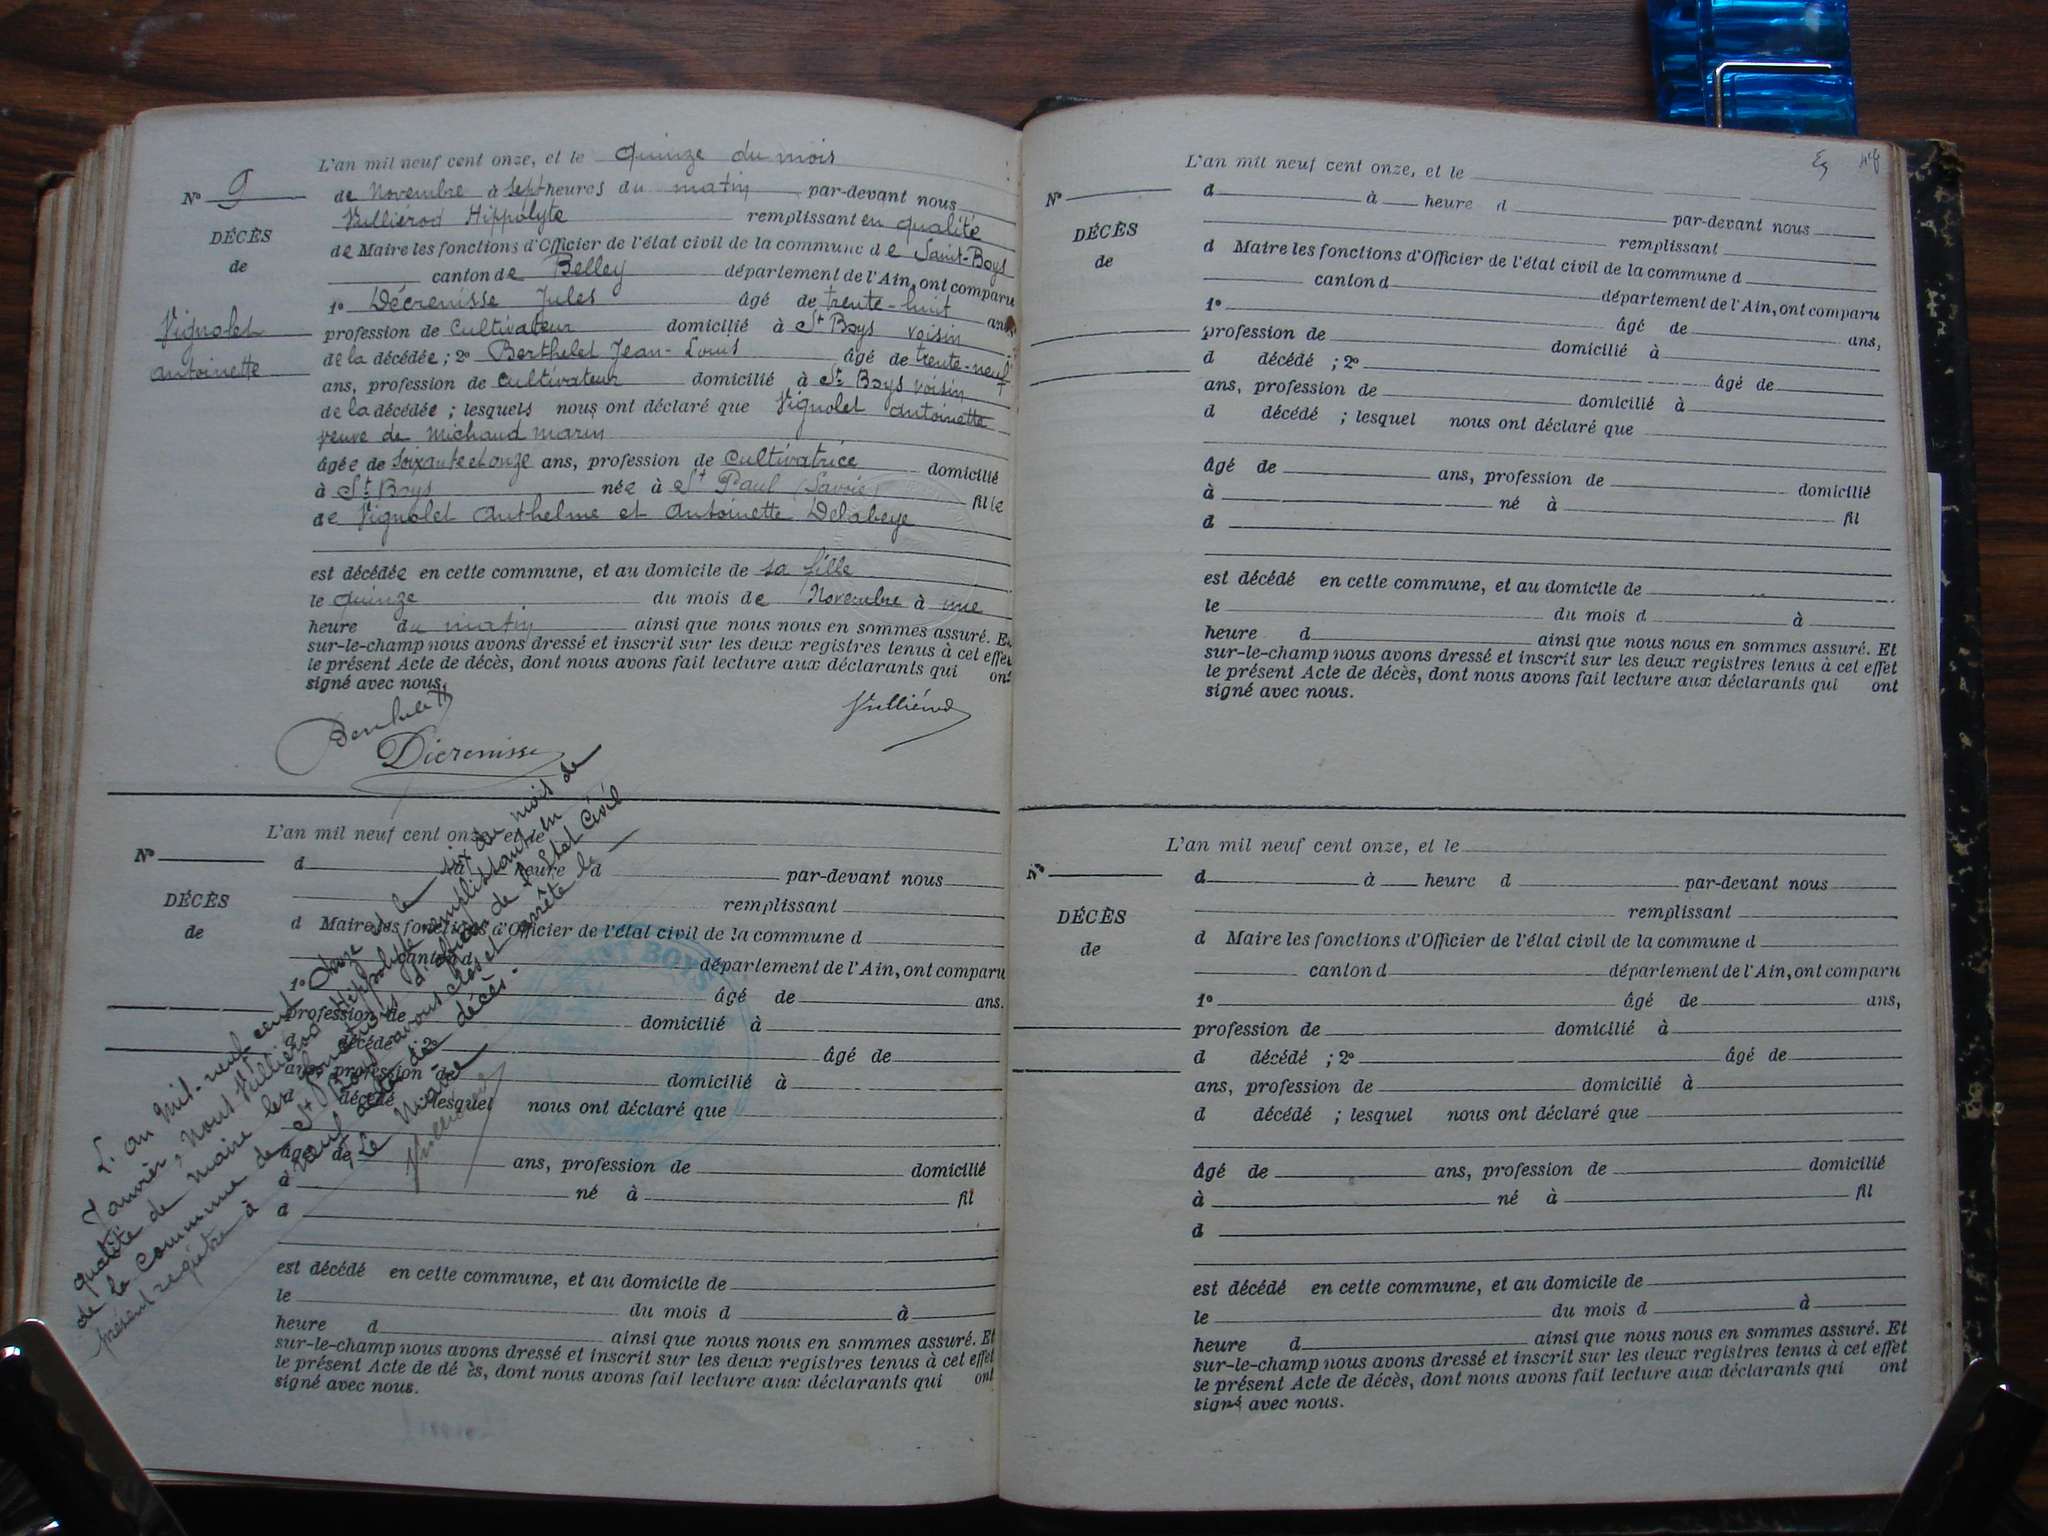 L'an mil neuf cent onze, et le quinze du mois
N° 9
de Novembre à sept heures du matin par-devant nous
Vulliérod Hippolyte remplissant en qualité
DÉCÈS
de
de Maire les fonctions d'Officier de l'état civil de la commune de Saint-Boys
canton de Belley département de l'Ain, ont comparu
1° Décrenisse Jules âgé de trente-huit ans
Vignolet
antoinette
profession de Cultivateur domicilié à St Boys voisin
de la décédée ; 2° Berthelet Jean-Louis âgé de trente-neuf
ans, profession de Cultivateur domicilié à St Boys voisin
de la décédée ; lesquels nous ont déclaré que Vignolet antoinette
veuve de Michaud marin
âgée de Soixante et onze ans, profession de Cultivatrice domicilié
à St Boys née à St Paul (Savoie) fille
de Vignolet Anthelme et Antoinette Delabeye
est décédée en cette commune, et au domicile de sa fille
le quinze du mois de Novembre à une
heure du matin ainsi que nous nous en sommes assuré. Et
sur-le-champ nous avons dressé et inscrit sur les deux registres tenus à cet effet
le présent Acte de décès, dont nous avons fait lecture aux déclarants qui ont
signé avec nous.
Vulliérod
Décrenisse
L'an mil neuf cent onze, et le
N°
d à heure d par-devant nous
remplissant
DÉCÈS
de
d Maire les fonctions d'Officier de l'état civil de la commune d
canton d département de l'Ain, ont comparu
1° âgé de ans.
profession de domicilié à
d décédé ; 2° âgé de
ans, profession de domicilié à
d décédé ; lesquel nous ont déclaré que
âgé de ans, profession de domicilié
à né à fil
d
est décédé en cette commune, et au domicile de
le du mois d à
heure d ainsi que nous nous en sommes assuré. Et
sur-le-champ nous avons dressé et inscrit sur les deux registres tenus à cet effet
le présent Acte de dé ès, dont nous avons fait lecture aux déclarants qui ont
signé avec nous.
L'an mil-neuf cent onze et le six du mois de
Janvier, Nous Vulliérod Hippolyte remplissant en
qualité de maire les fonctions d'officier de l'Etat Civil
de la Commune de St Boys avons clos et arrêté le
présent registre à neuf actes de décès.
Le Maire
Vulliérod
SAINT BOYS
L'an mil neuf cent onze, et le
N°
d à heure d par-devant nous
remplissant
DÉCÈS
de
d Maire les fonctions d'Officier de l'état civil de la commune d
canton d département de l'Ain, ont comparu
1° âgé de ans,
profession de domicilié à
d décédé ; 2° âgé de
ans, profession de domicilié à
d décédé ; lesquel nous ont déclaré que
âgé de ans, profession de domicilié
à né à fil
d
est décédé en cette commune, et au domicile de
le du mois d à
heure d ainsi que nous nous en sommes assuré. Et
sur-le-champ nous avons dressé et inscrit sur les deux registres tenus à cet effet
le présent Acte de décès, dont nous avons fait lecture aux déclarants qui ont
signé avec nous.
L'an mil neuf cent onze, et le
N°
d à heure d par-devant nous
remplissant
DÉCÈS
de
d Maire les fonctions d'Officier de l'état civil de la commune d
canton d département de l'Ain, ont comparu
1° âgé de ans,
profession de domicilié à
d décédé ; 2° âgé de
ans, profession de domicilié à
d décédé ; lesquel nous ont déclaré que
âgé de ans, profession de domicilié
à né à fil
d
est décédé en cette commune, et au domicile de
le du mois d à
heure d ainsi que nous nous en sommes assuré. Et
sur-le-champ nous avons dressé et inscrit sur les deux registres tenus à cet effet
le présent Acte de décès, dont nous avons fait lecture aux déclarants qui ont
signé avec nous.